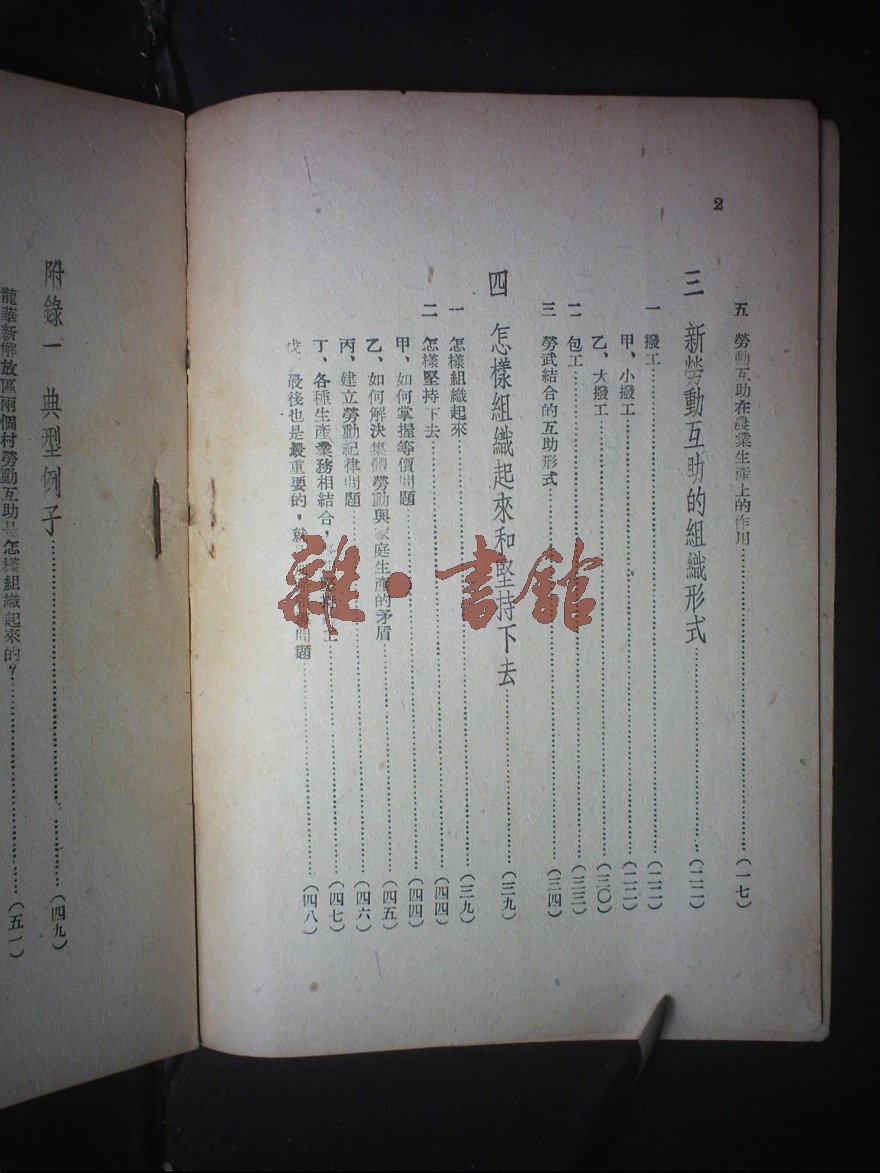 2
五 勞動互助在農業生產上的作用……(一七)
三 新勞動互助的組織形式……(二二)
一 撥工……(二二)
甲、小撥工……(二二)
乙、大撥工……(三〇)
二 包工……(三三)
三 勞武結合的互助形式……(三四)
四 怎樣組織起來和堅持下去……(三九)
一 怎樣組織起來……(三九)
二 怎樣堅持下去……(四四)
甲、如何掌握等價問題……(四四)
乙、如何解決集體勞動與家庭生產的矛盾……(四五)
丙、建立勞動紀律問題……(四六)
丁、各種生產業務相結合，……(四七)
戊、最後也是最重要的，就 問題……(四八)
附錄一 典型例子……(四九)
龍華新解放區兩個村勞動互助是怎樣組織起來的？……(五一)
雜·書館